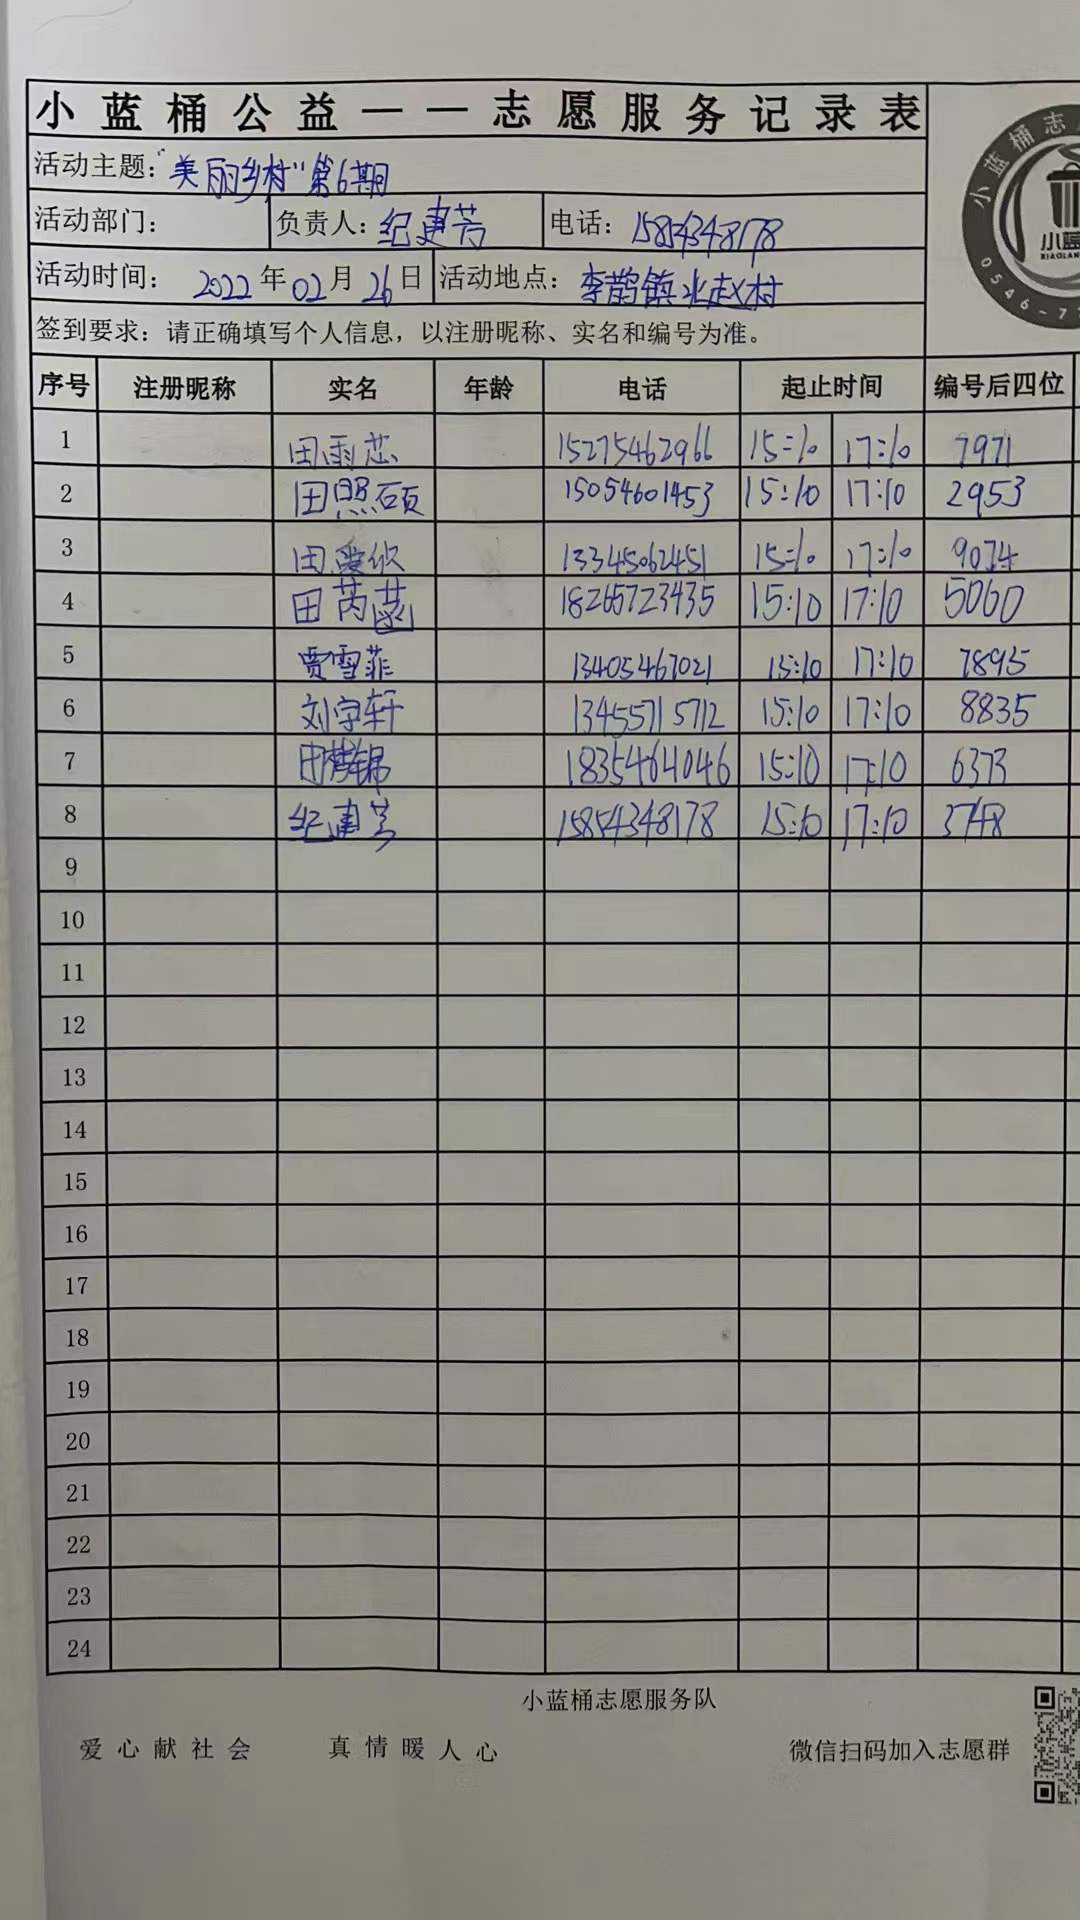 小蓝桶公益——志愿服务记录表
活动主题:“美丽乡村”第6期
活动部门: 负责人:纪建芳 电话:15854348178
活动时间: 2022年02月26日 活动地点:李鹊镇北赵村
签到要求:请正确填写个人信息,以注册昵称、实名和编号为准。
序号 注册昵称 实名 年龄 电话 起止时间 编号后四位
1 田雨芯 15275462966 15:10 17:10 7971
2 田照硕 15054601453 15:10 17:10 2953
3 田爱欣 13345062451 15:10 17:10 9074
4 田芮菡 18265723435 15:10 17:10 5060
5 贾雪菲 13405467021 15:10 17:10 7895
6 刘宇轩 13455715712 15:10 17:10 8835
7 田 锦 18354641046 15:10 17:10 6373
8 纪建芳 15854348178 15:10 17:10 3748
9
10
11
12
13
14
15
16
17
18
19
20
21
22
23
24
小蓝桶志愿服务队
爱心献社会 真情暖人心 微信扫码加入志愿群
小蓝桶志
小蓝
XIAOLAN
0546-7